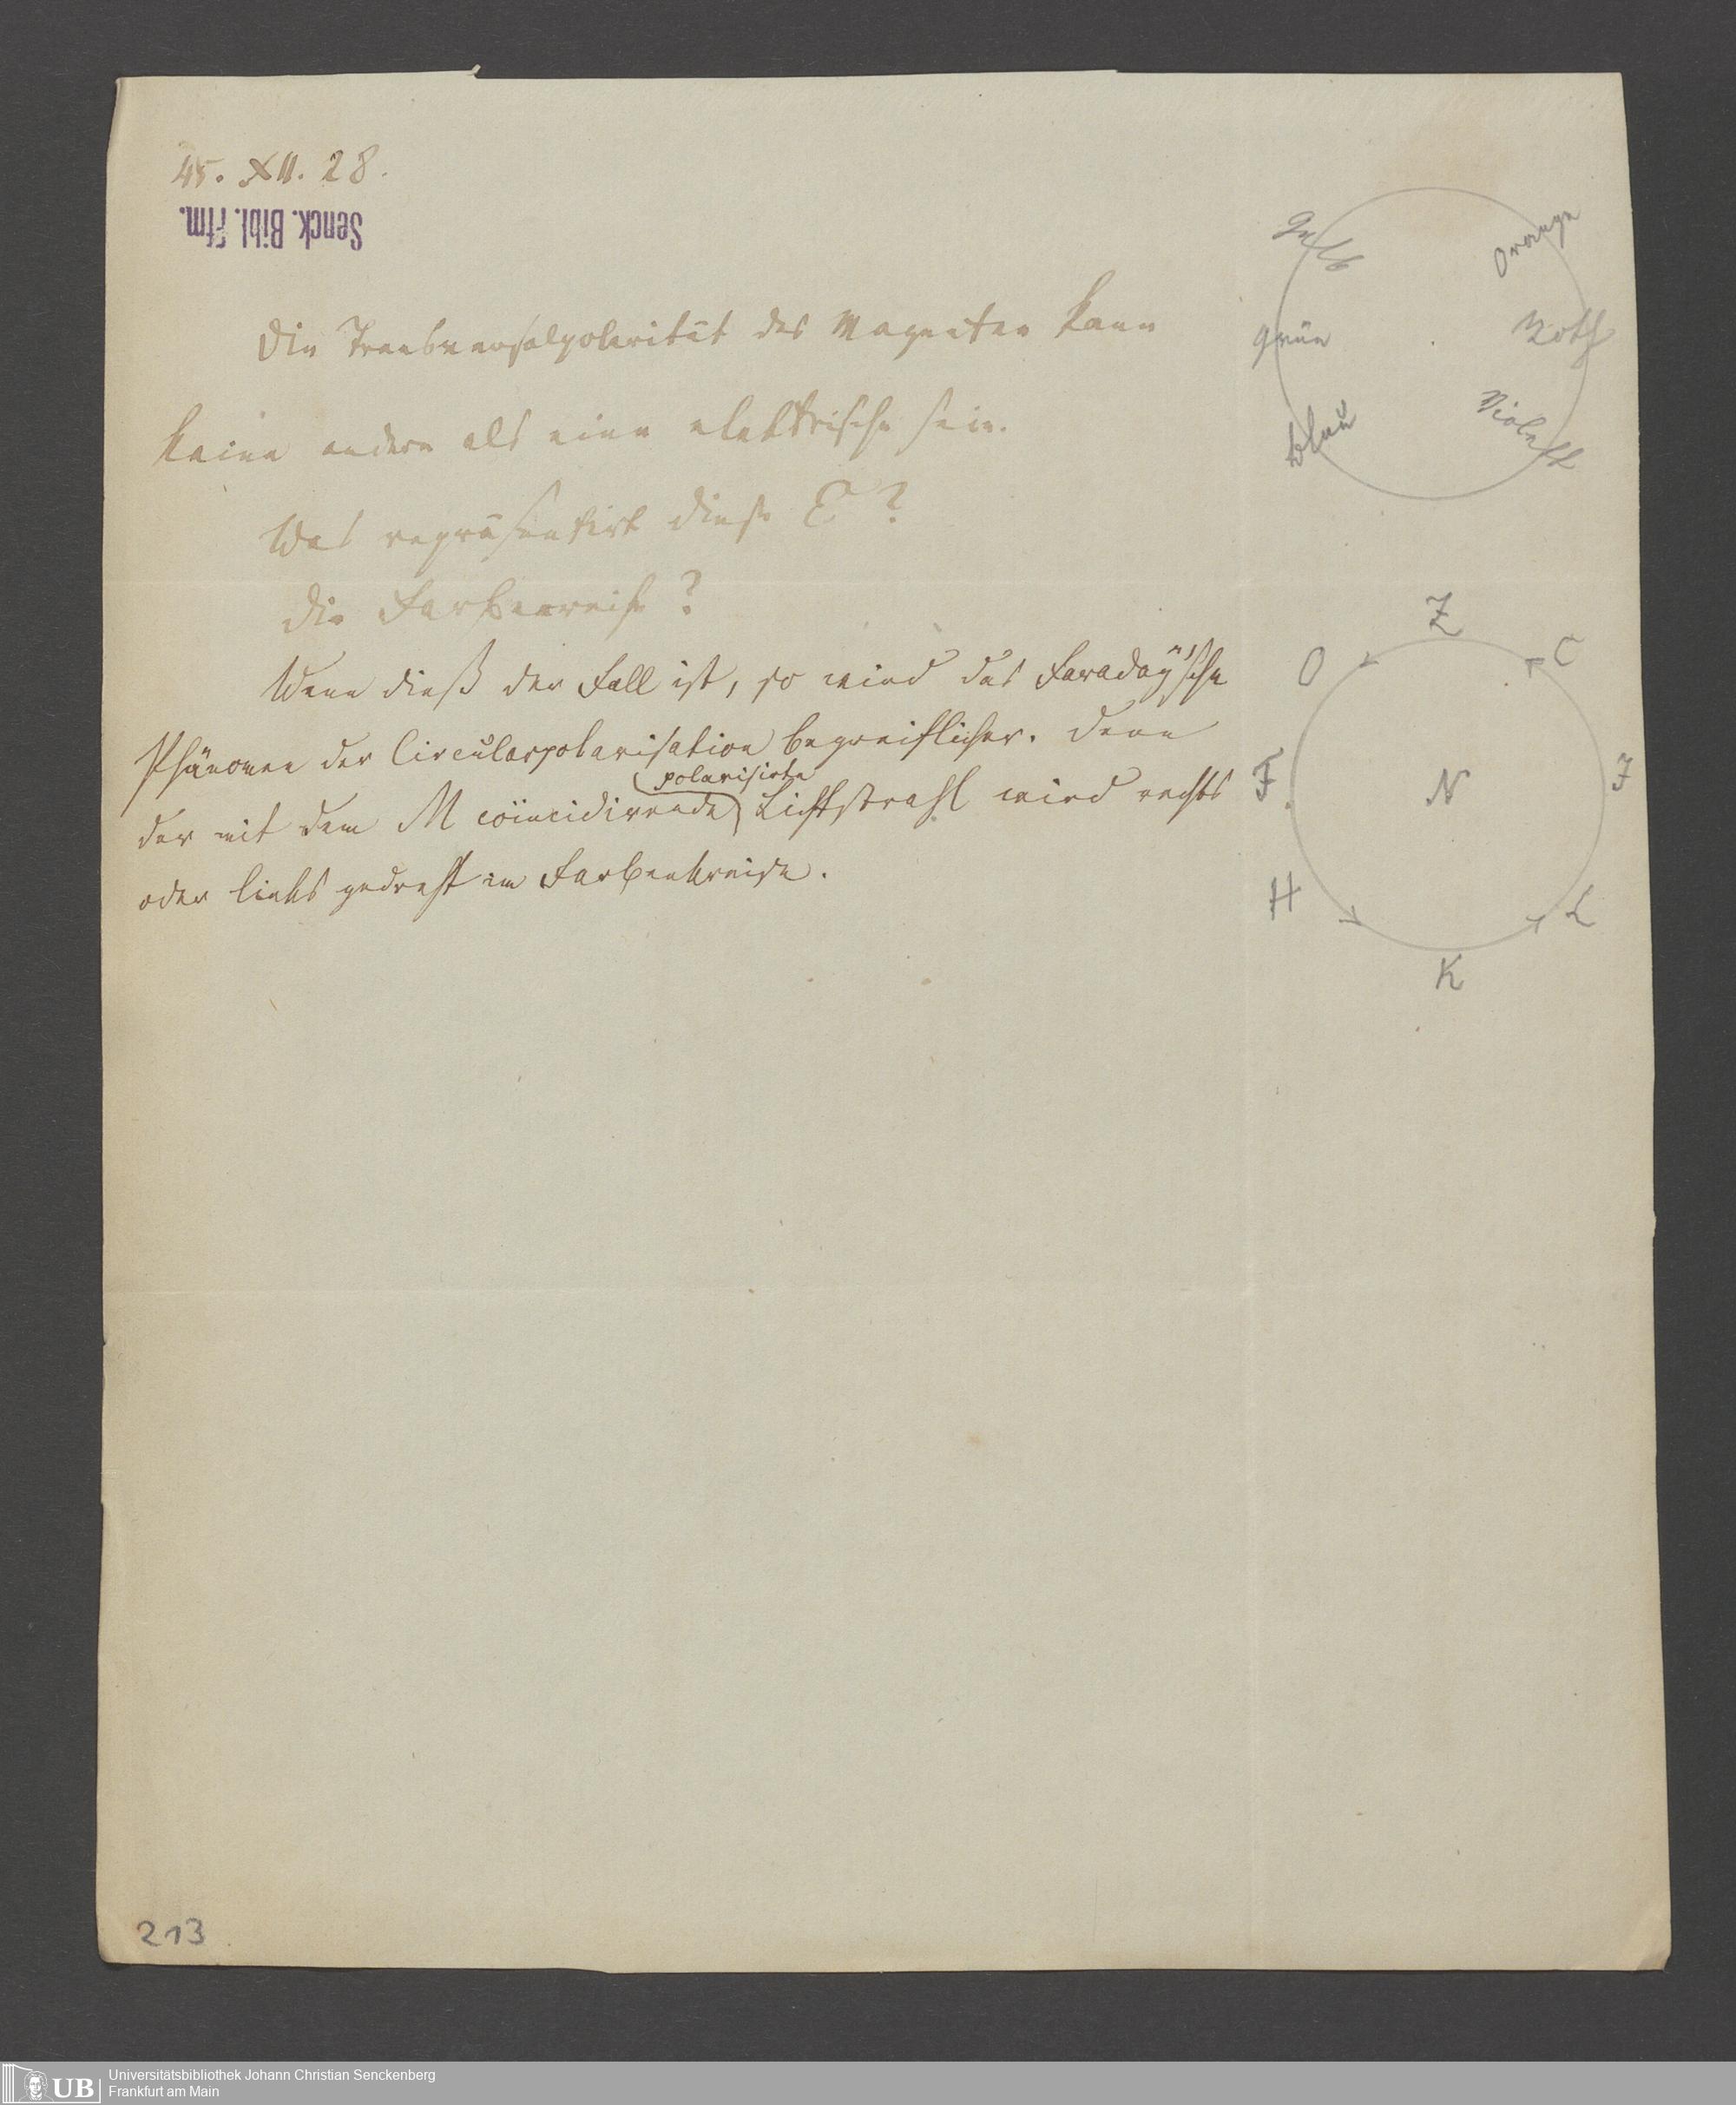 45. XII. 28.
Senck. Bibl. Ffm.
Die Transversalpolarität des Magneten kann
keine andere als eine elektrische sein.
Was repräsentirt diese E?
Die Farbenreihe?
Wenn dieß der Fall ist, so wird das Faraday'sche
Phänomen der Circularpolarisation begreiflicher. Denn
polarisirte
der mit dem M coïncidirende Lichtstrahl wird rechts
oder links gedreht im Farbenkreise.
Gelb
Orange
Grün
Roth
Blau
Violett
Z
O
C
F
N
J
H
L
K
213
UB
Universitätsbibliothek Johann Christian Senckenberg
Frankfurt am Main